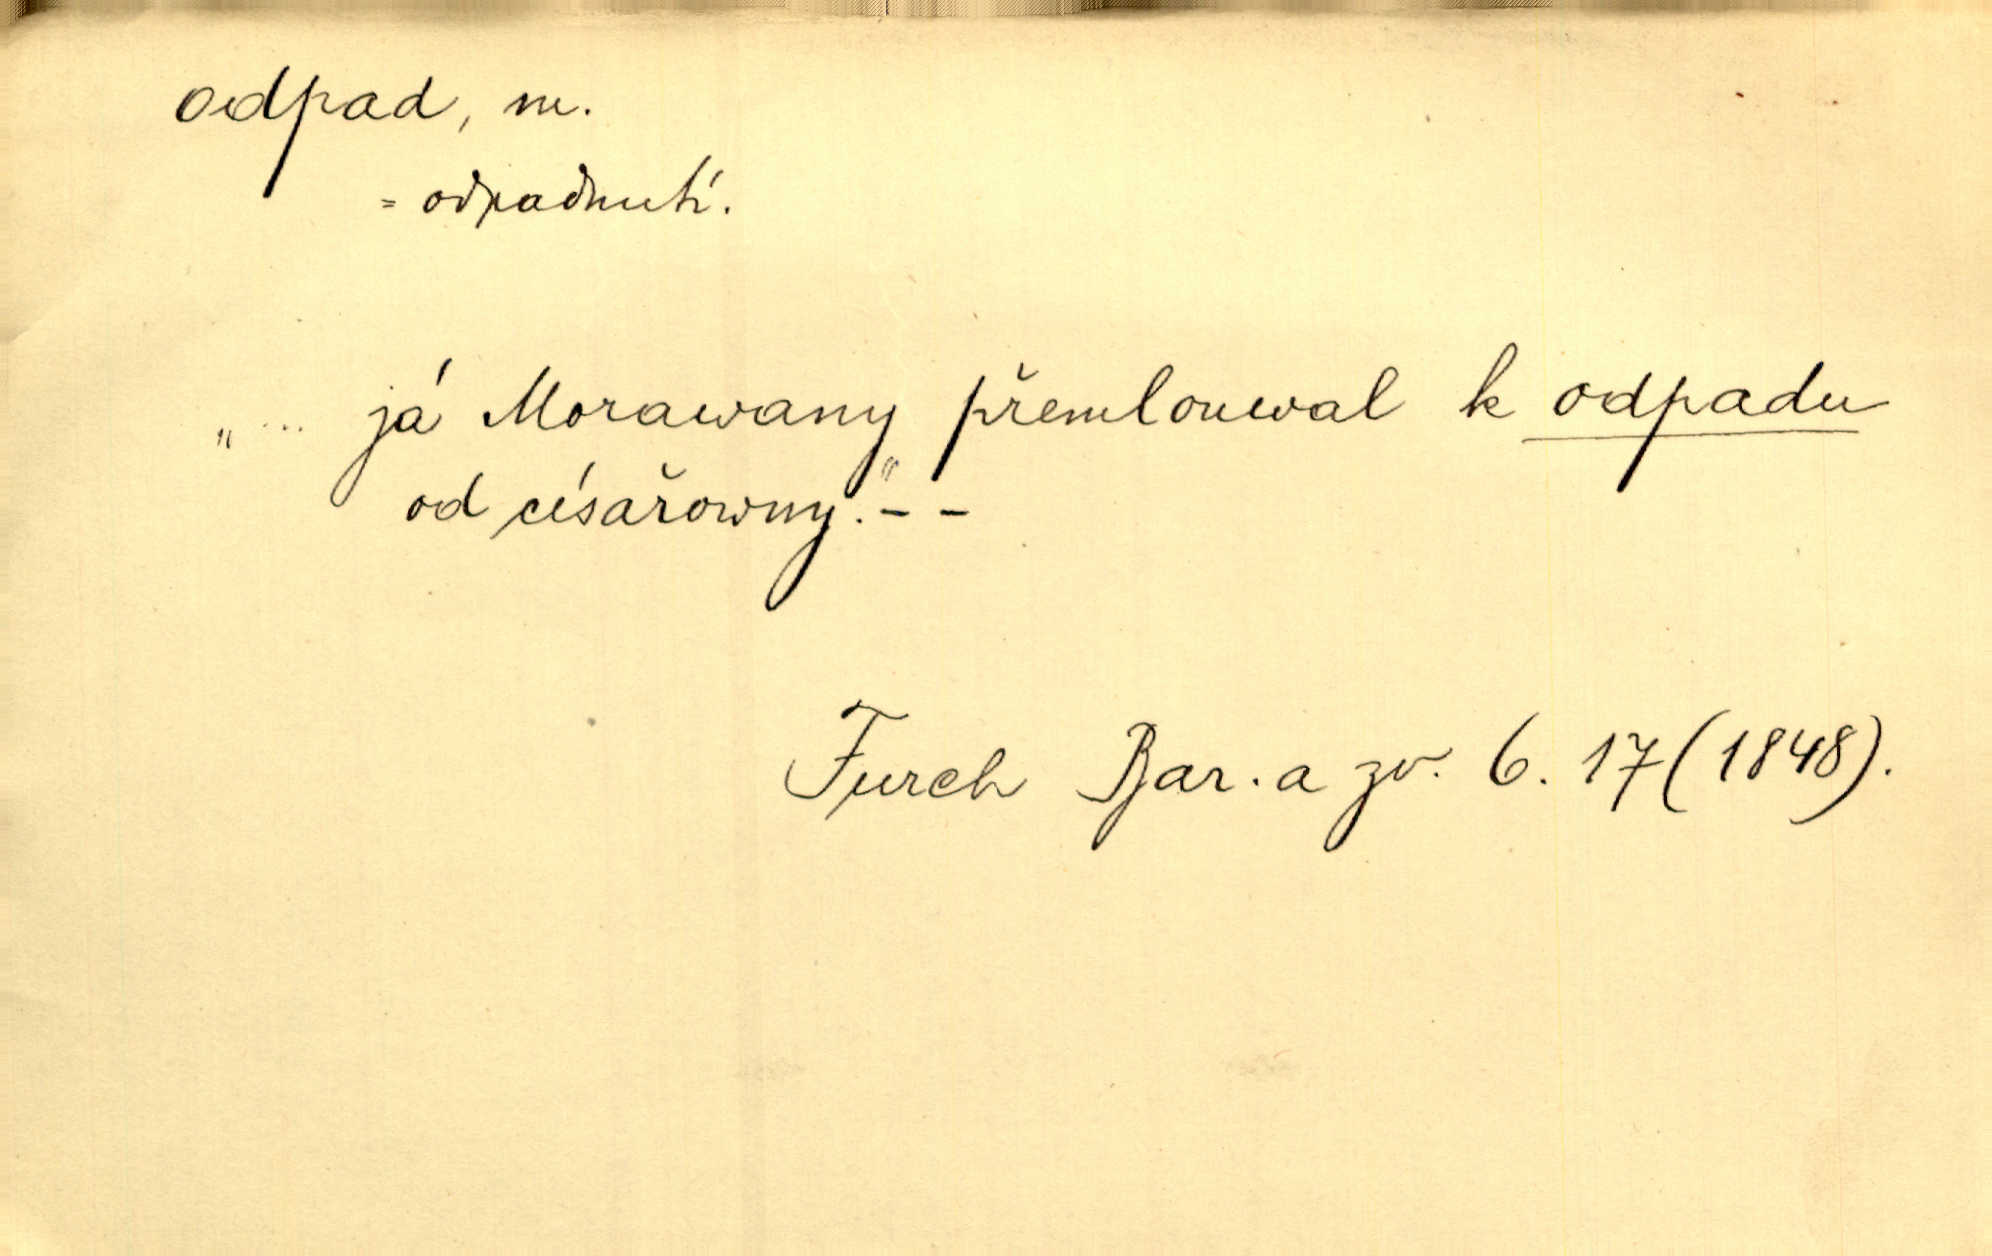 odpad, m.
= odpadnutí.
„... já Morawany přemlouwal k odpadu
od císařowny." - -
Furch Bar. a zv. 6. 17 (1848).